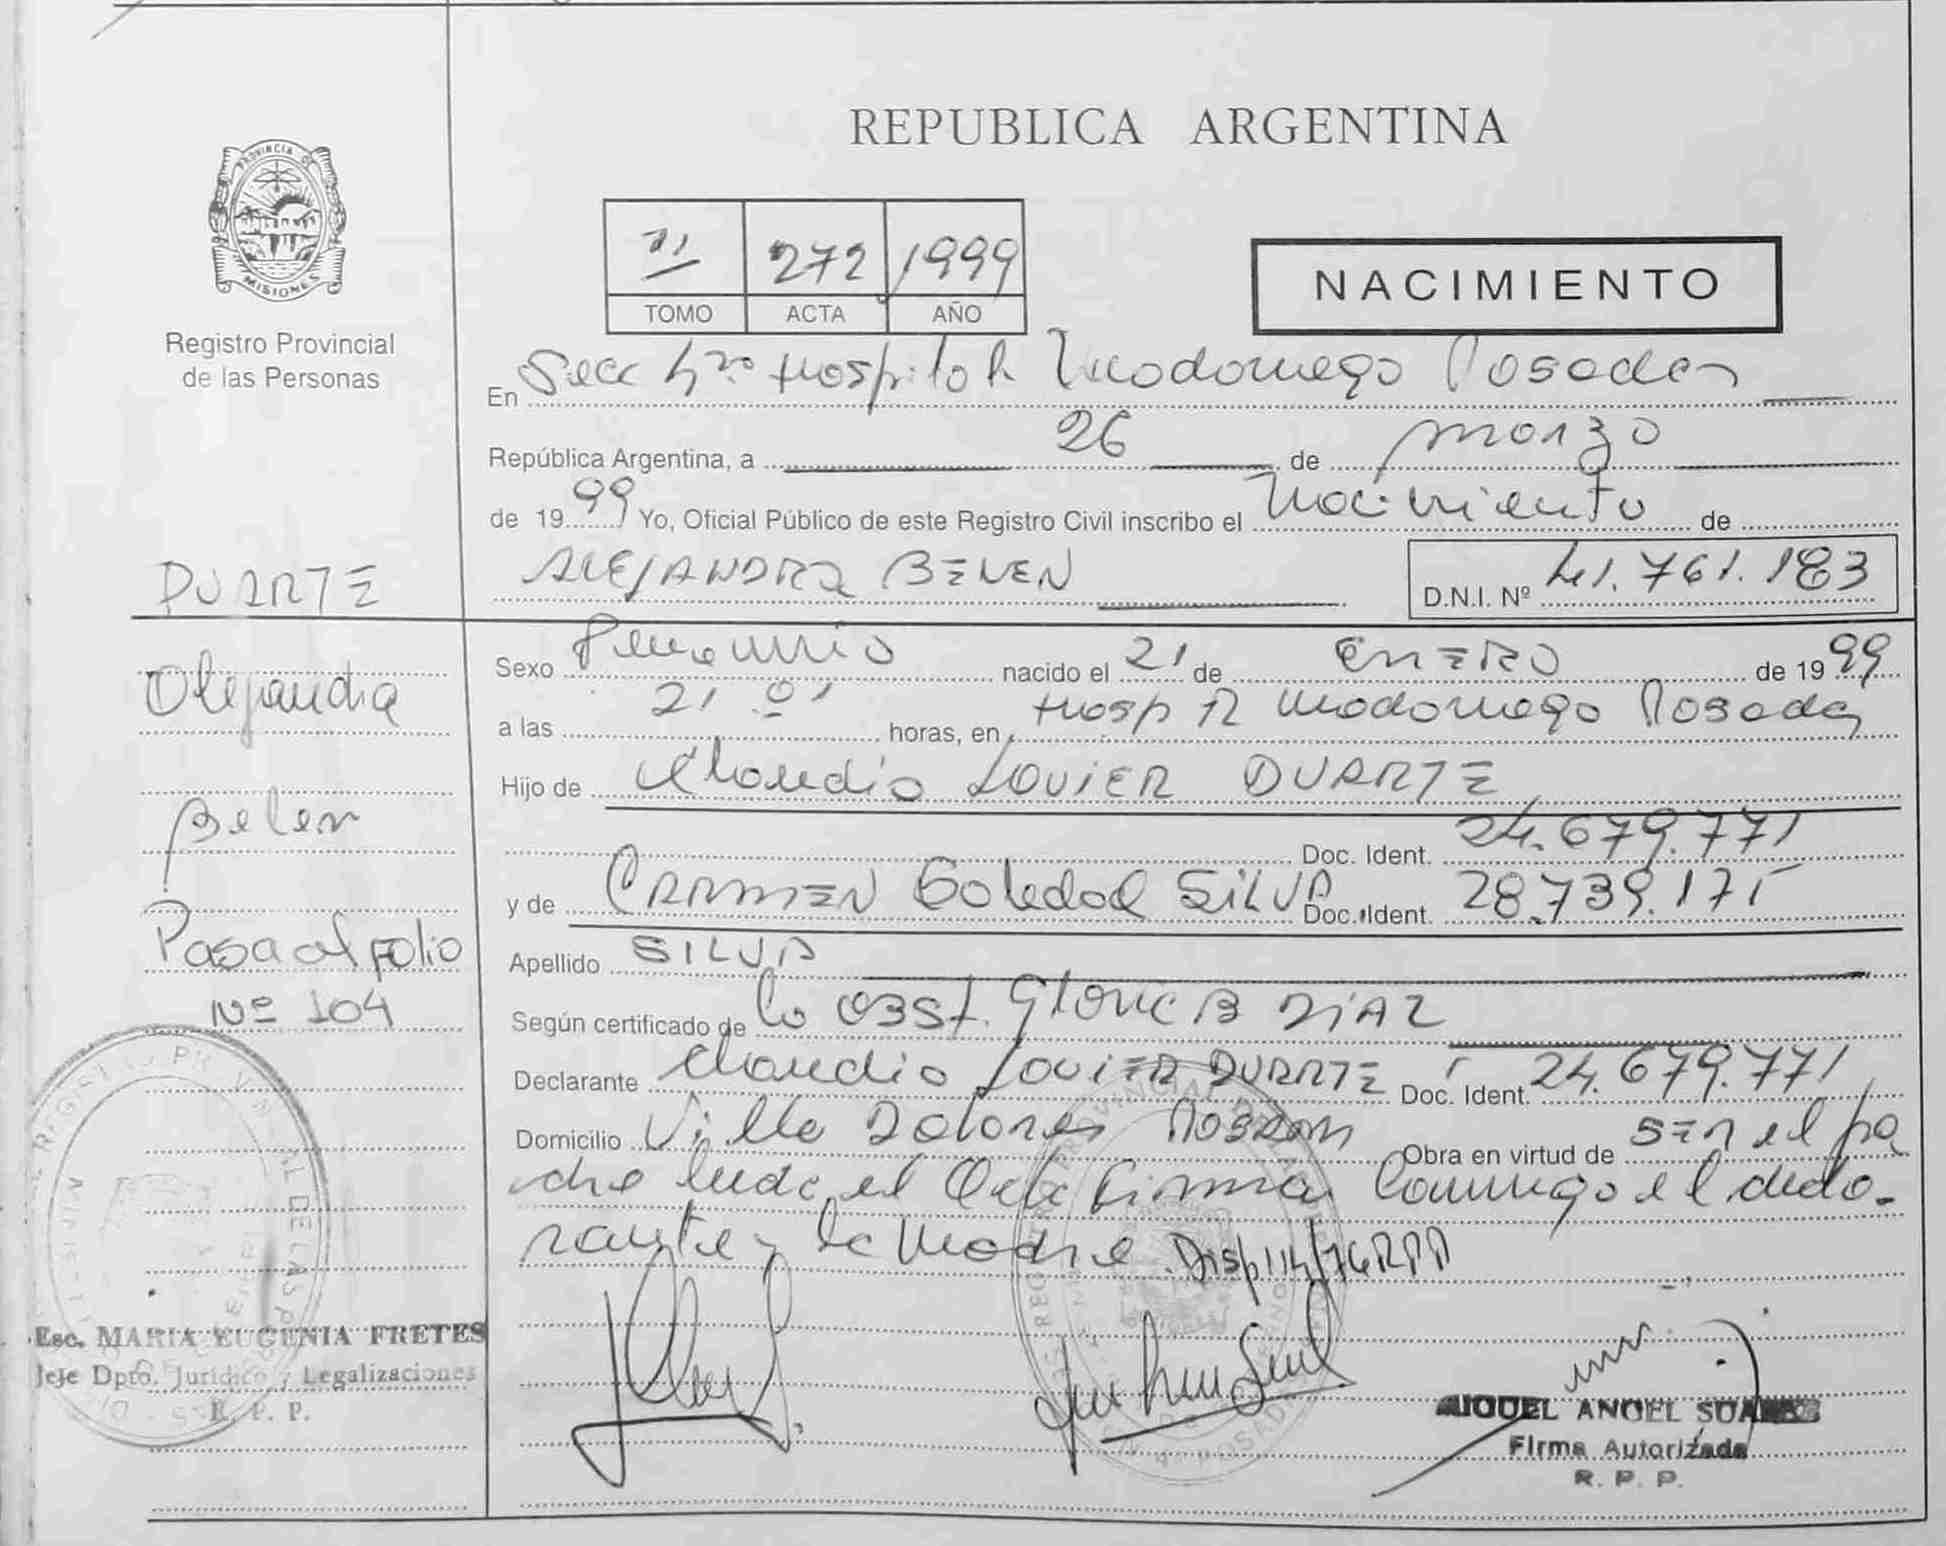 REPUBLICA ARGENTINA
PROVINCIA DE
MISIONES
Registro Provincial
de las Personas
272 1999
TOMO ACTA AÑO
NACIMIENTO
En Secc Hospital R Madariaga Posadas
República Argentina, a 26 de marzo
de 1999 Yo, Oficial Público de este Registro Civil inscribo el Nacimiento de
DUARTE
ALEJANDRA BELEN
D.N.I. Nº 41.761.183
Alejandra
Belen
Pasa al folio
Nº 104
Sexo Femenino nacido el 21 de ENERO de 1999
a las 21.01 horas, en Hosp R Madariaga Posadas
Hijo de Claudio Javier DUARTE
Doc. Ident. 24.679.771
y de CARMEN Soledad SILVA Doc. Ident. 28.739.175
Apellido SILVA
Según certificado de la OBST. Gloria B DIAZ
Declarante Claudio Javier DUARTE Doc. Ident. 24.679.771
Domicilio Villa Dolores Posadas Obra en virtud de ser el pa
dre leida el Acta firma conmigo el decla-
rante y la Madre. Disp 114/76 RPP
Esc. MARIA EUGENIA FRETES
Jefe Dpto. Jurídico y Legalizaciones
R. P. P.
MIGUEL ANGEL
Firma Autorizada
R. P. P.